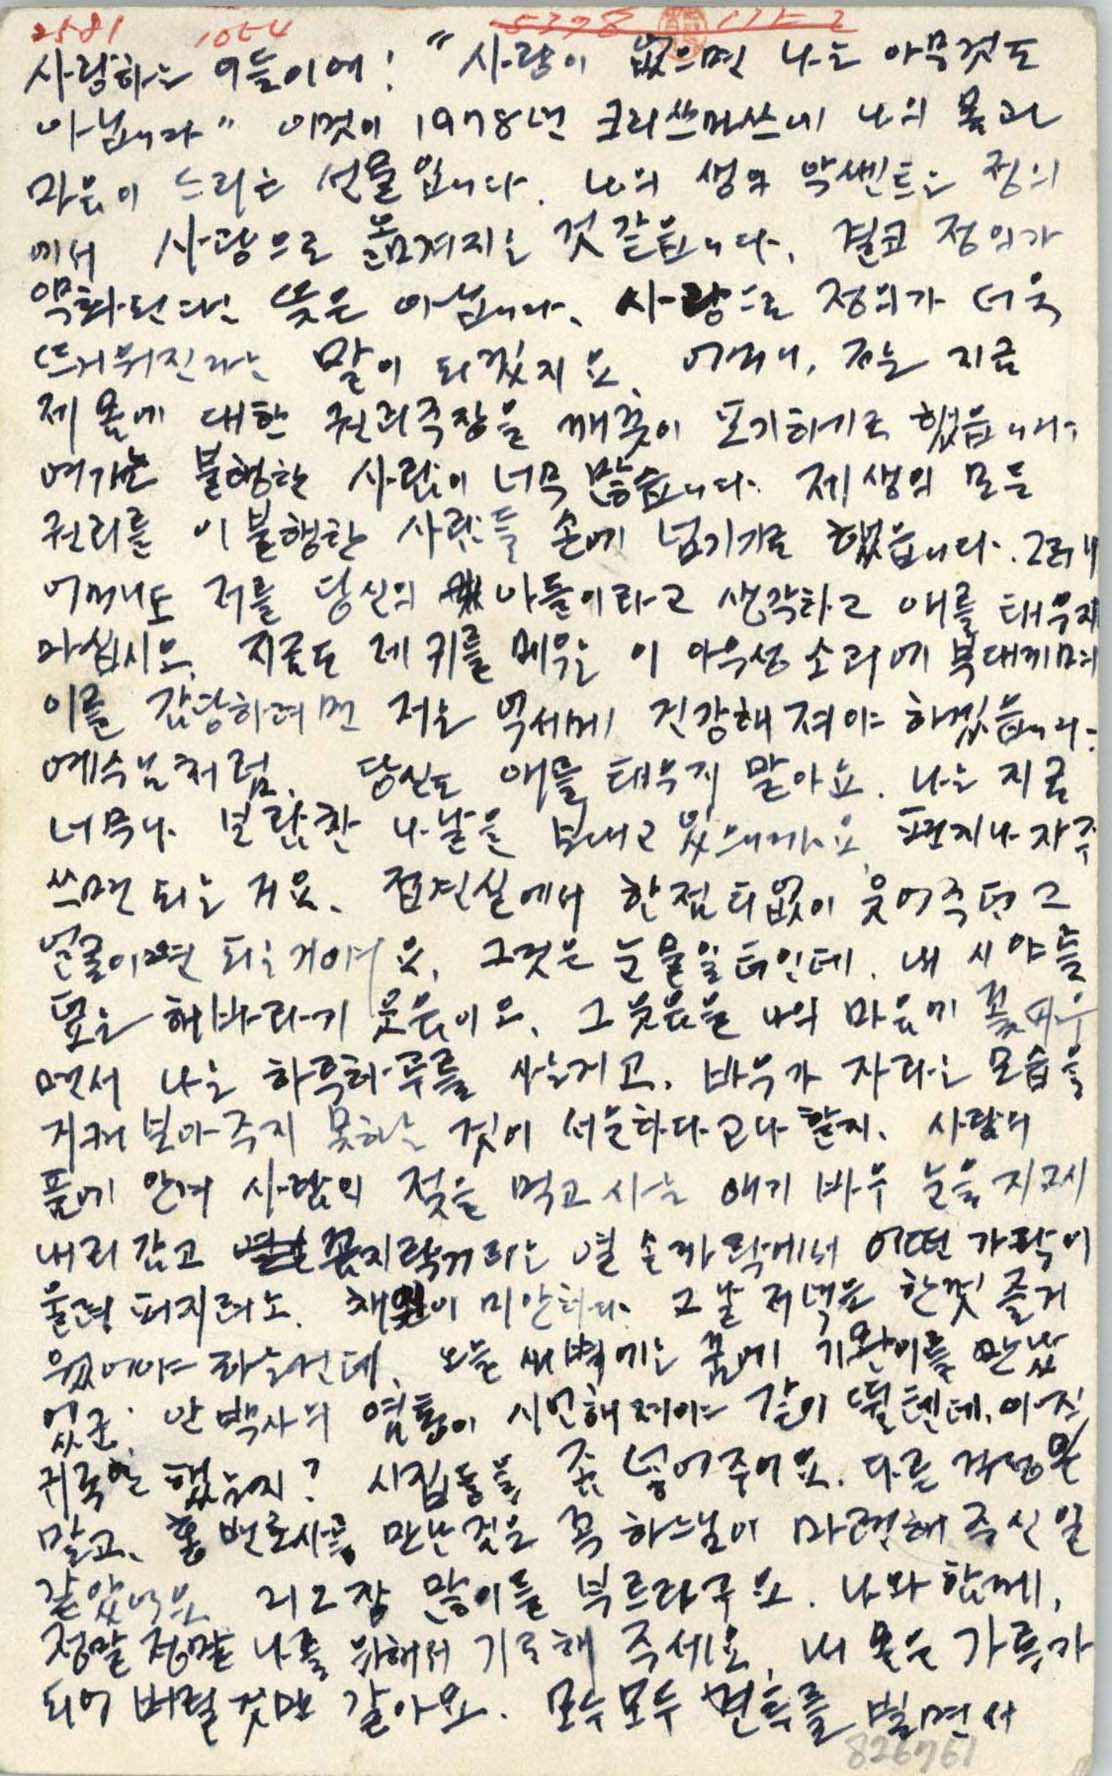 2581 1054 5378
사랑하는 이들이여! "사랑이 없으면 나는 아무것도
아닙니다" 이것이 1978년 크리쓰마쓰에 나의 몸과
마음이 드리는 선물입니다. 나의 생의 악쎈트는 정의
에서 사랑으로 옮겨지는 것 같습니다. 결코 정의가
약화된다는 뜻은 아닙니다. 사랑으로 정의가 더욱
뜨거워진다는 말이 되겠지요. 어머니, 저는 지금
제 몸에 대한 권리주장을 깨끗이 포기하기로 했습니다.
여기는 불행한 사람이 너무 많습니다. 제 생의 모든
권리를 이 불행한 사람들 손에 넘기기로 했습니다. 그러니
어머니도 저를 당신의 아들이라고 생각하고 애를 태우지
마십시오. 지금도 제 귀를 메우는 이 아우성 소리에 북대끼며
이를 감당하려면 저는 억세게 건강해져야 하겠습니다.
예수님처럼. 당신도 애를 태우지 말아요. 나는 지금
너무나 보람찬 나날을 보내고 있으니까요. 편지나 자주
쓰면 되는 거요. 접견실에서 한점 티없이 웃어주던 그
얼굴이면 되는 거예요. 그것은 눈물일 터인데. 내 시야를
덮는 해바라기 웃음이오. 그 웃음을 나의 마음에 꽃피우
면서 나는 하루하루를 사는거고. 바우가 자라는 모습을
지켜 보아주지 못하는 것이 서운하다고나 할지. 사랑의
품에 안겨 사랑의 젖을 먹고 사는 애기 바우 눈을 지그시
내리 감고 꼼지락거리는 열 손까락에서 어떤 가락이
울려 퍼지려노. 채원이 미안하다. 그날 저녁은 한껏 즐거
웠어야 하는건데. 오늘 새벽에는 꿈에 기완이를 만났
었군. 안박사의 염통이 시원해져야 같이 뛸텐데. 아직
귀국안 했는지? 시집들을 좀 넣어주어요. 다른 걱정은
말고. 홍변호사를 만난것은 꼭 하느님이 마련해 주신 일
같았어요. 310장 많이들 부르라구요. 나와 함께.
정말 정말 나를 위해서 기도해 주세요. 내 몸은 가루가
되어 버릴것만 같아요. 모두 모두 면류를 빌면서
826761